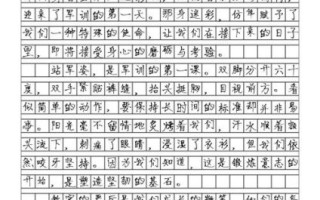 迎来了军训的第一天。那身迷彩，仿佛赋予了
我们一种特殊的使命，让我们在接下来的日子
里，即将接受身心的磨砺与考验。
站军姿，是军训的第一课。双脚分开六十
度，双手紧贴裤缝，抬头挺胸，目视前方。看
似简单的动作，要保持长时间的标准却并非易
事。阳光毫不留情地炙烤着我们，汗水顺着额
头流下，刺痛了眼睛，浸湿了衣衫，但我们依
然咬牙坚持。因为我们知道，这是锻炼意志的
开始，是塑造坚韧的基石。